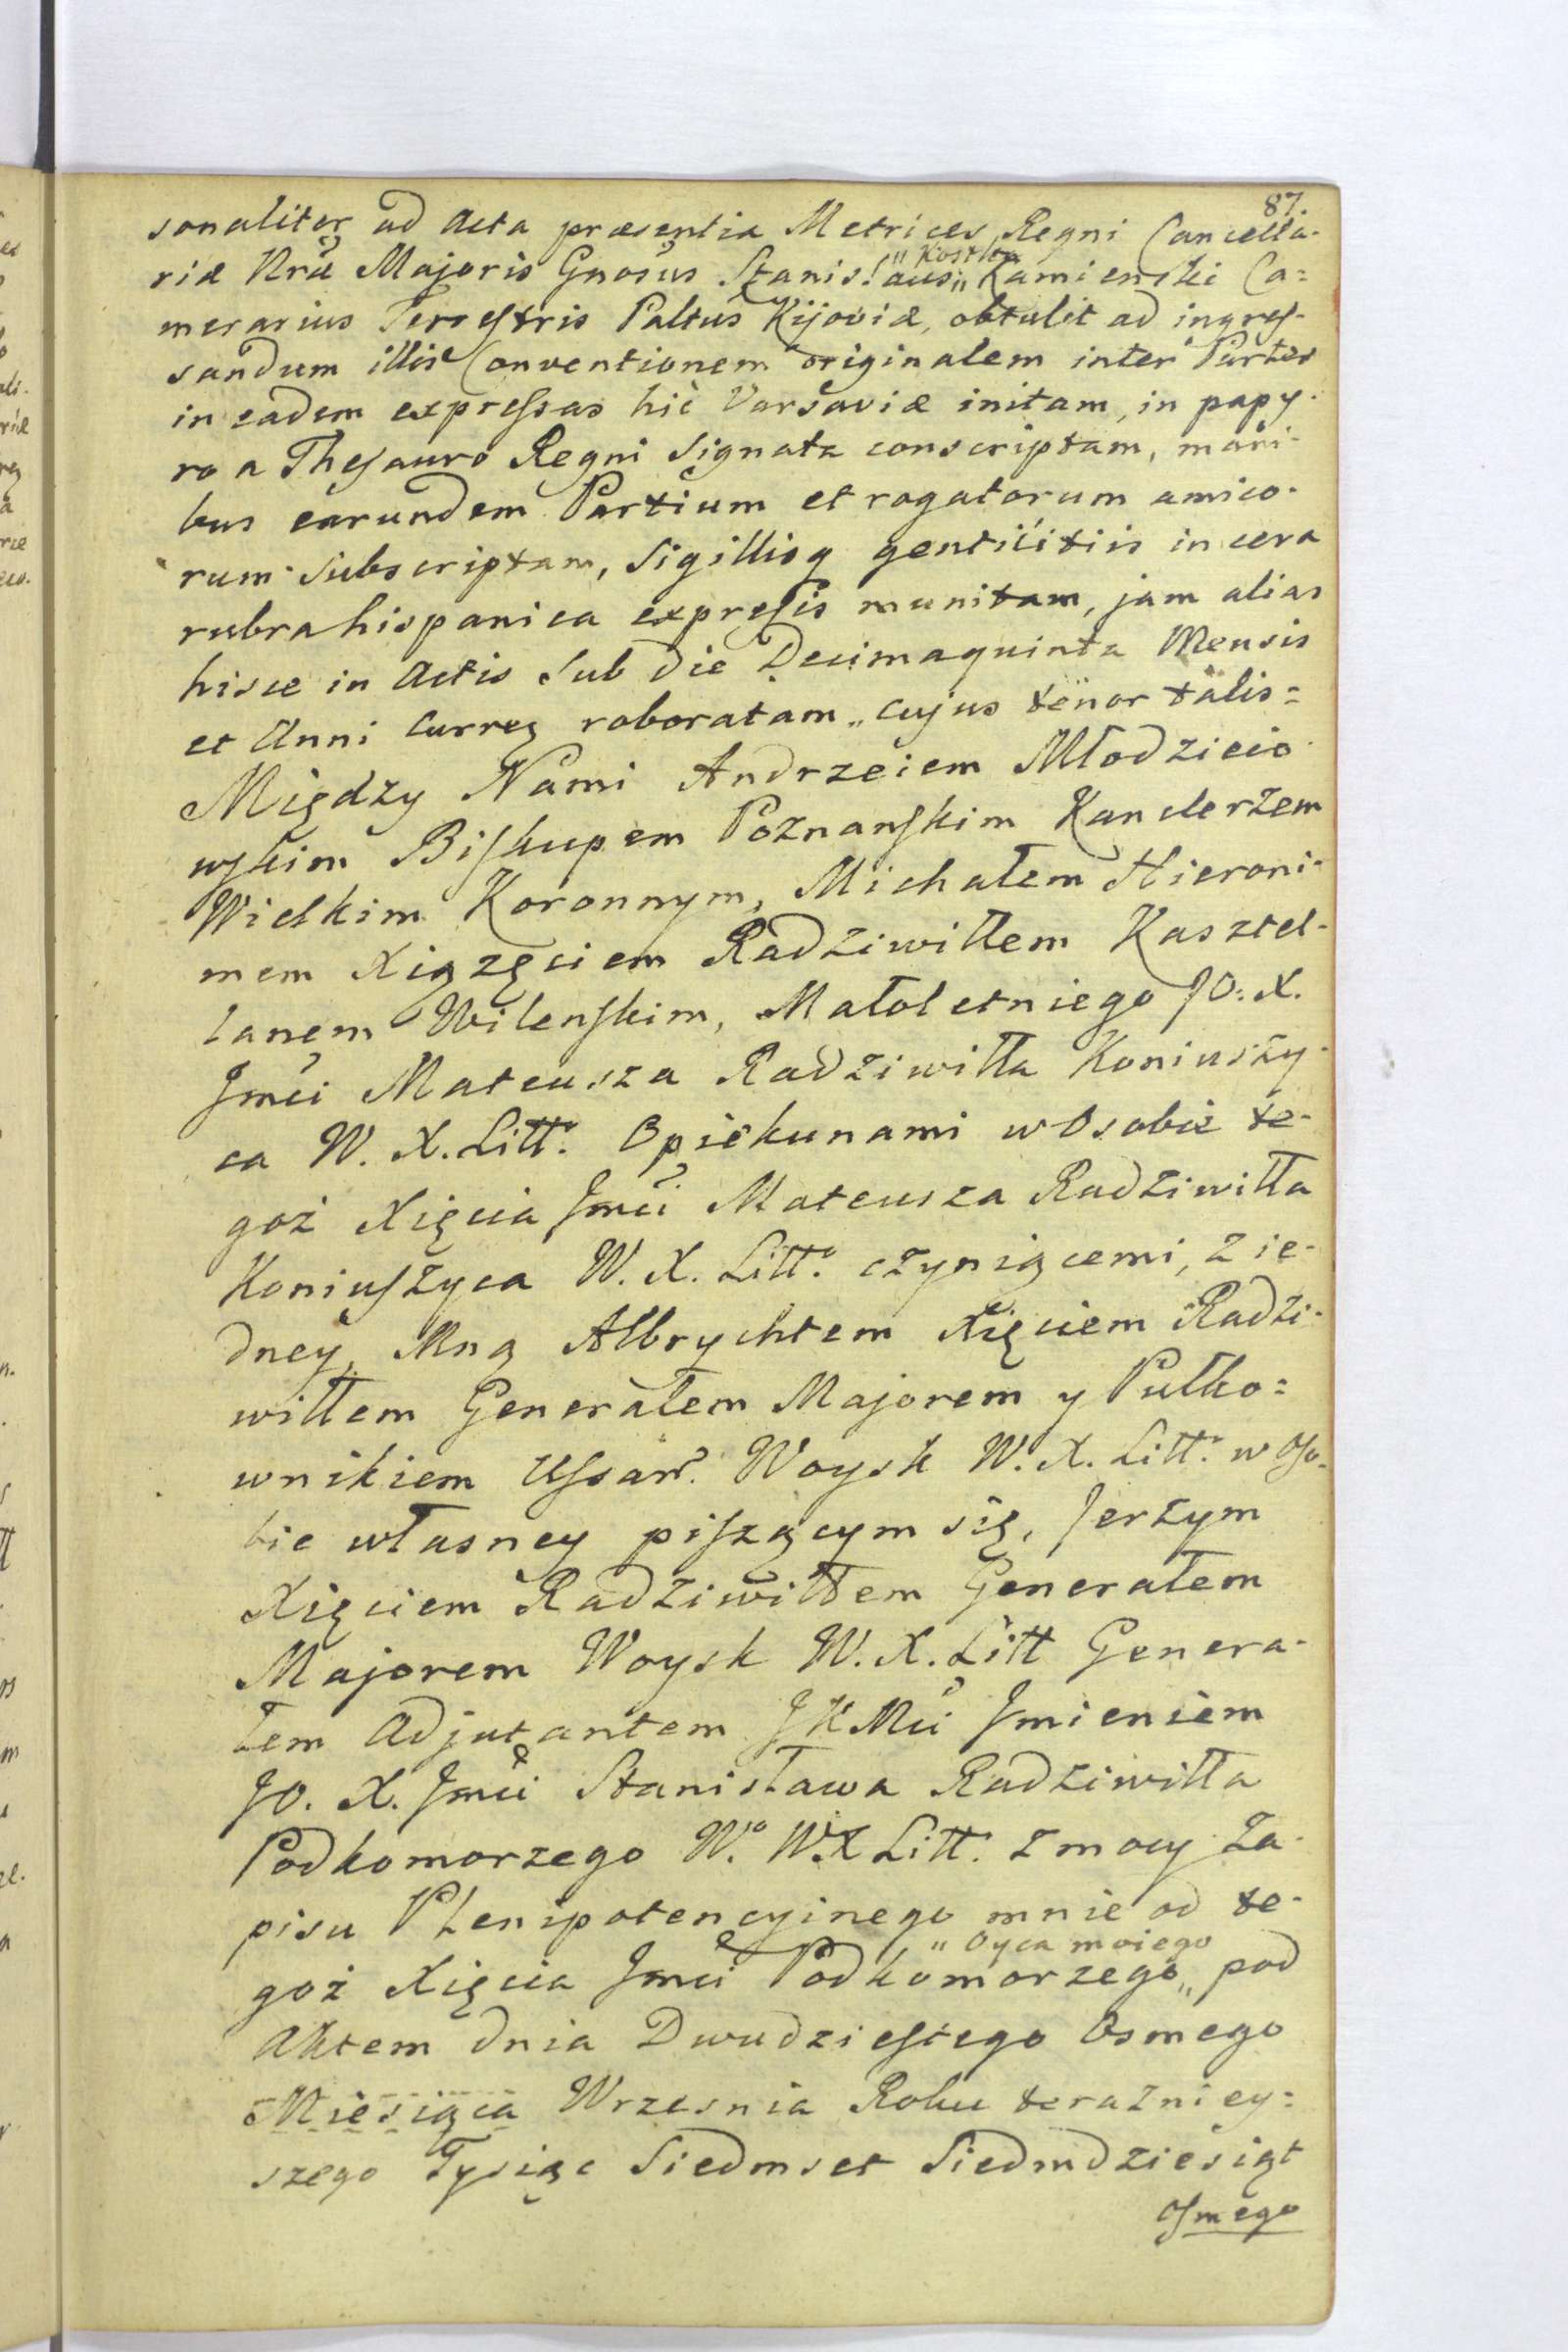 87.
sonaliter ad Acta præsentia Metrices Regni Cancella-
riæ Nræ Majoris Gnosus Stanislaus „ Kostka „ Kamienski Ca=
merarius Terrestris Paltus Kijoviæ, obtulit ad ingres-
sandum illis Conventionem originalem inter Partes
in eadem expressas hic Varsaviæ initam, in papy-
ro a Thesauro Regni Signata conscriptam, mani-
bus earundem Partium et rogatorum amico-
rum subscriptam, Sigillisq gentilitiis in cera
rubra hispanica expressis munitam, jam alias
hisce in Actis sub die Decimaquinta Mensis
et Anni currez roboratam „ cujus tenor talis =
Między Nami Andrzeiem Młodzieio-
wskim Biskupem Poznanskim Kanclerzem
Wielkim Koronnym, Michałem Hieroni-
mem Xiązęciem Radziwiłłem Kasztel-
lanem Wilenskim, Małoletniego JO. X.
Jmci Mateusza Radziwiłła Koniuszy-
ca W. X. Litt: Opiekunami w Osobie te-
goż Xięcia Jmci Mateusza Radziwiłła
Koniuszyca W. X. Litt: czyniącemi, z ie-
dney, Mną Albrychtem Xięciem Radzi-
wiłłem Generałem Majorem y Pułko=
wnikiem Ussar: Woysk W. X. Litt: w Oso-
bie własney piszącym się, Jerzym
Xięciem Radziwiłłem Generałem
Majorem Woysk W. X. Litt Genera-
łem Adjutantem JKMci Jmieniem
JO. X. Jmci Stanisława Radziwiłła
Podkomorzego W.o W.X Litt: z mocy Za-
pisu Plenipotencyinego mnie od te-
goż Xięcia Jmci Podkomorzego „ Oyca moiego „ pod
Aktem dnia Dwudziestego Osmego
Miesiąca Wrzesnia Roku terazniey=
szego Tysiąc Siedmset Siedmdziesiąt
Osmego